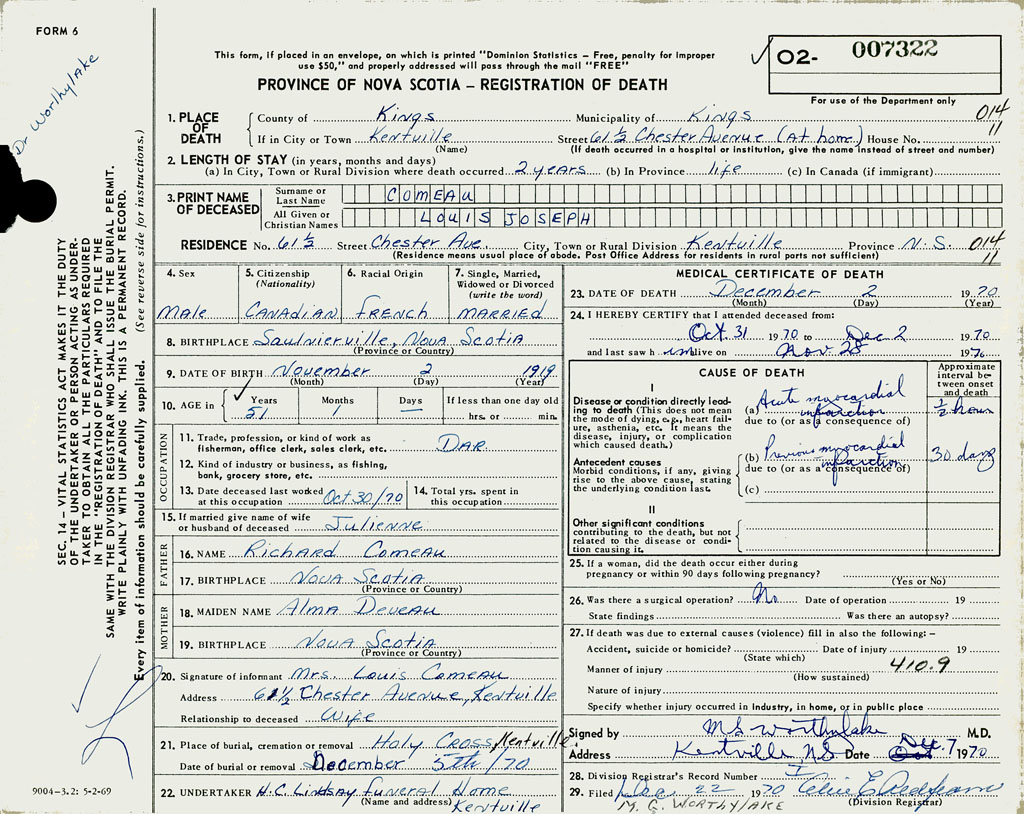 FORM 6
Dr Worthylake
This form, if placed in an envelope, on which is printed "Dominion Statistics – Free, penalty for improper
use $50," and properly addressed will pass through the mail "FREE"
PROVINCE OF NOVA SCOTIA – REGISTRATION OF DEATH
02- 007322
For use of the Department only
1. PLACE OF DEATH
County of Kings Municipality of Kings 014
If in City or Town Kentville Street 61½ Chester Avenue (At home) House No. 11
(Name) (If death occurred in a hospital or institution, give the name instead of street and number)
2. LENGTH OF STAY (in years, months and days)
(a) In City, Town or Rural Division where death occurred 2 years (b) In Province life (c) In Canada (if immigrant)
3. PRINT NAME OF DECEASED
Surname or Last Name COMEAU
All Given or Christian Names LOUIS JOSEPH
RESIDENCE No. 61½ Street Chester Ave. City, Town or Rural Division Kentville Province N.S. 014
(Residence means usual place of abode. Post Office Address for residents in rural parts not sufficient) 11
4. Sex
Male
5. Citizenship (Nationality)
CANADIAN
6. Racial Origin
FRENCH
7. Single, Married, Widowed or Divorced (write the word)
MARRIED
8. BIRTHPLACE Saulnierville, Nova Scotia
(Province or Country)
9. DATE OF BIRTH November 2 1919
(Month) (Day) (Year)
10. AGE in
Years Months Days If less than one day old
51 1 — hrs. or min.
OCCUPATION
11. Trade, profession, or kind of work as
fisherman, office clerk, sales clerk, etc. DAR.
12. Kind of industry or business, as fishing,
bank, grocery store, etc.
13. Date deceased last worked
at this occupation Oct 30/70
14. Total yrs. spent in
this occupation
15. If married give name of wife
or husband of deceased Julienne
FATHER
16. NAME Richard Comeau
17. BIRTHPLACE Nova Scotia
(Province or Country)
MOTHER
18. MAIDEN NAME Alma Deveau
19. BIRTHPLACE Nova Scotia
(Province or Country)
20. Signature of informant Mrs. Louis Comeau
Address 61½ Chester Avenue, Kentville
Relationship to deceased Wife
21. Place of burial, cremation or removal Holy Cross, Kentville
Date of burial or removal December 5th/70
22. UNDERTAKER H.C. Lindsay Funeral Home
(Name and address) Kentville
MEDICAL CERTIFICATE OF DEATH
23. DATE OF DEATH December 2 1970
(Month) (Day) (Year)
24. I HEREBY CERTIFY that I attended deceased from:
Oct. 31 1970 to Dec 2 1970
and last saw h im alive on Nov 28 1970
CAUSE OF DEATH
Approximate interval between onset and death
I
Disease or condition directly leading
to death (This does not mean
the mode of dying, e.g., heart failure,
asthenia, etc. It means the
disease, injury, or complication
which caused death.)
(a) Acute myocardial infarction ½ hour
due to (or as a consequence of)
Antecedent causes
Morbid conditions, if any, giving
rise to the above cause, stating
the underlying condition last.
(b) Previous myocardial infarction 30 days
due to (or as a consequence of)
(c)
II
Other significant conditions
contributing to the death, but not
related to the disease or condition
causing it.
25. If a woman, did the death occur either during
pregnancy or within 90 days following pregnancy?
(Yes or No)
26. Was there a surgical operation? No Date of operation 19
State findings Was there an autopsy?
27. If death was due to external causes (violence) fill in also the following: –
Accident, suicide or homicide? Date of injury 19
(State which)
Manner of injury 410.9
(How sustained)
Nature of injury
Specify whether injury occurred in industry, in home, or in public place
Signed by M G Worthylake M.D.
Address Kentville, NS Date Dec. 7 1970
28. Division Registrar's Record Number
29. Filed Dec 22 1970
(Division Registrar)
M. G. WORTHYLAKE
SEC. 14 – VITAL STATISTICS ACT MAKES IT THE DUTY
OF THE UNDERTAKER OR PERSON ACTING AS UNDER-
TAKER TO OBTAIN ALL THE PARTICULARS REQUIRED
IN THE "REGISTRATION OF DEATH" AND TO FILE THE
SAME WITH THE DIVISION REGISTRAR WHO SHALL ISSUE THE BURIAL PERMIT.
WRITE PLAINLY WITH UNFADING INK. THIS IS A PERMANENT RECORD.
Every item of information should be carefully supplied. (See reverse side for instructions.)
9004-3.2: 5-2-69